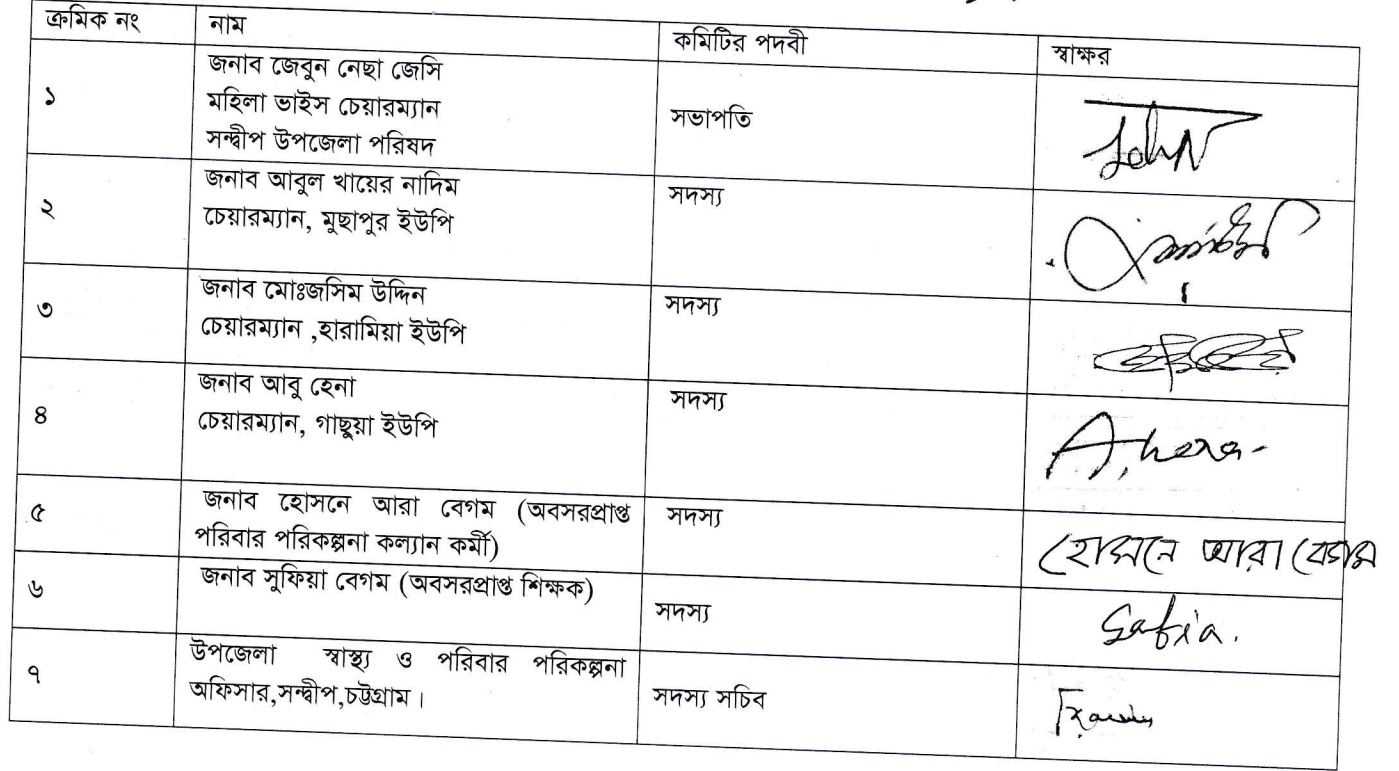 ক্রমিক নং নাম কমিটির পদবী স্বাক্ষর
১ জনাব জেবুন নেছা জেসি
মহিলা ভাইস চেয়ারম্যান
সন্দ্বীপ উপজেলা পরিষদ
সভাপতি
২ জনাব আবুল খায়ের নাদিম
চেয়ারম্যান, মুছাপুর ইউপি
সদস্য
৩ জনাব মোঃজসিম উদ্দিন
চেয়ারম্যান ,হারামিয়া ইউপি
সদস্য
৪ জনাব আবু হেনা
চেয়ারম্যান, গাছুয়া ইউপি
সদস্য
A, hena-
৫ জনাব হোসনে আরা বেগম (অবসরপ্রাপ্ত
পরিবার পরিকল্পনা কল্যান কর্মী)
সদস্য
হোসনে আরা বেগম
৬ জনাব সুফিয়া বেগম (অবসরপ্রাপ্ত শিক্ষক)
সদস্য
Safia.
৭ উপজেলা স্বাস্থ্য ও পরিবার পরিকল্পনা
অফিসার,সন্দ্বীপ,চট্টগ্রাম।
সদস্য সচিব